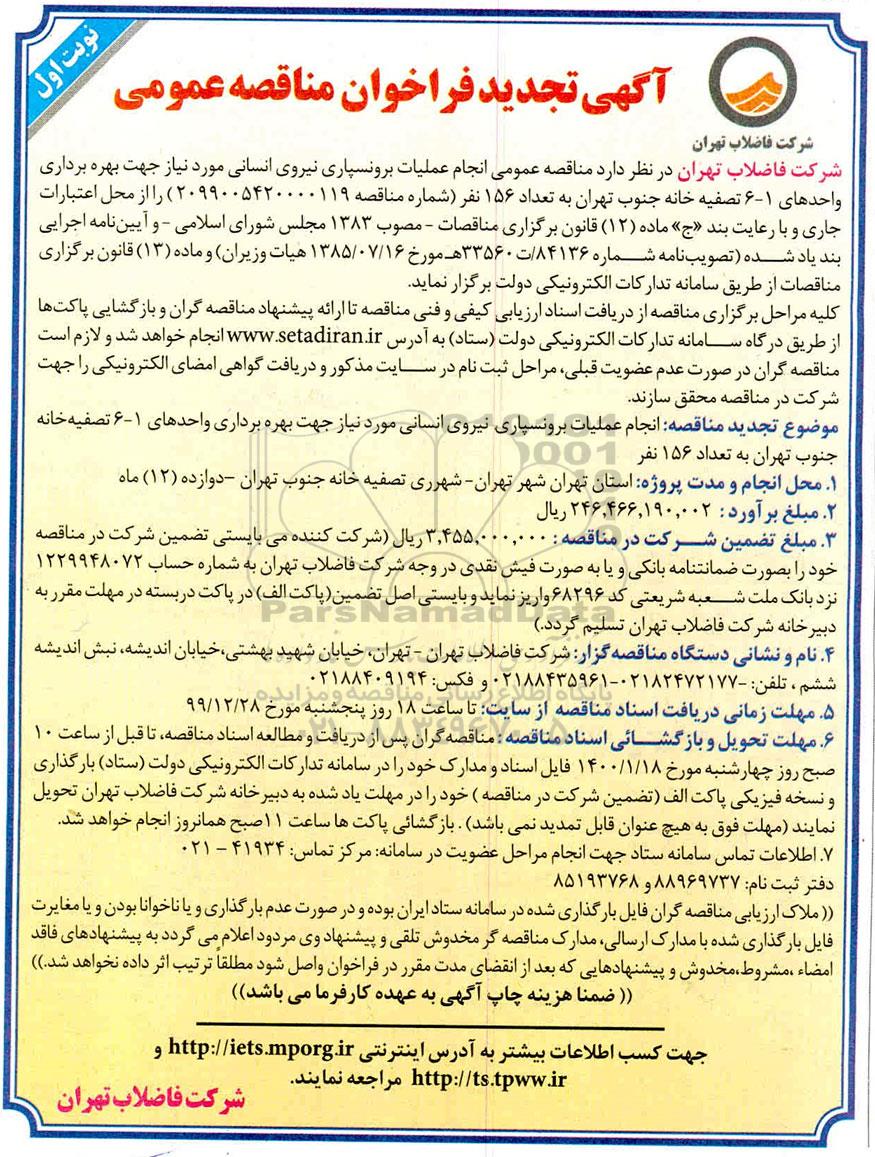 نوبت اول
آگهی تجدید فراخوان مناقصه عمومی
شرکت فاضلاب تهران
شرکت فاضلاب تهران در نظر دارد مناقصه عمومی انجام عملیات برونسپاری نیروی انسانی مورد نیاز جهت بهره برداری
واحدهای ۱-۶ تصفیه خانه جنوب تهران به تعداد ۱۵۶ نفر (شماره مناقصه ۲۰۹۹۰۰۵۴۲۰۰۰۰۱۱۹) را از محل اعتبارات
جاری و با رعایت بند «ج» ماده (۱۲) قانون برگزاری مناقصات - مصوب ۱۳۸۳ مجلس شورای اسلامی - و آیین‌نامه اجرایی
بند یاد شده (تصویب‌نامه شماره ۸۴۱۳۶/ت۳۳۵۶۰هـ مورخ ۱۳۸۵/۰۷/۱۶ هیات وزیران) و ماده (۱۳) قانون برگزاری
مناقصات از طریق سامانه تدارکات الکترونیکی دولت برگزار نماید.
کلیه مراحل برگزاری مناقصه از دریافت اسناد ارزیابی کیفی و فنی مناقصه تا ارائه پیشنهاد مناقصه گران و بازگشایی پاکت‌ها
از طریق درگاه سامانه تدارکات الکترونیکی دولت (ستاد) به آدرس www.setadiran.ir انجام خواهد شد و لازم است
مناقصه گران در صورت عدم عضویت قبلی، مراحل ثبت نام در سایت مذکور و دریافت گواهی امضای الکترونیکی را جهت
شرکت در مناقصه محقق سازند.
موضوع تجدید مناقصه: انجام عملیات برونسپاری نیروی انسانی مورد نیاز جهت بهره برداری واحدهای ۱-۶ تصفیه‌خانه
جنوب تهران به تعداد ۱۵۶ نفر
۱. محل انجام و مدت پروژه: استان تهران شهر تهران- شهرری تصفیه خانه جنوب تهران –دوازده (۱۲) ماه
۲. مبلغ برآورد : ۲۴۶,۴۶۶,۱۹۰,۰۰۲ ریال
۳. مبلغ تضمین شرکت در مناقصه : ۳,۴۵۵,۰۰۰,۰۰۰ ریال (شرکت کننده می بایستی تضمین شرکت در مناقصه
خود را بصورت ضمانتنامه بانکی و یا به صورت فیش نقدی در وجه شرکت فاضلاب تهران به شماره حساب ۱۲۲۹۹۴۸۰۷۲
نزد بانک ملت شعبه شریعتی کد ۶۸۲۹۶ واریز نماید و بایستی اصل تضمین(پاکت الف) در پاکت دربسته در مهلت مقرر به
دبیرخانه شرکت فاضلاب تهران تسلیم گردد.)
۴. نام و نشانی دستگاه مناقصه‌گزار: شرکت فاضلاب تهران - تهران، خیابان شهید بهشتی،خیابان اندیشه، نبش اندیشه
ششم ، تلفن: ۰۲۱۸۲۴۷۲۱۷۷-۰۲۱۸۸۴۳۵۹۶۱ و فکس: ۰۲۱۸۸۴۰۹۱۹۴
۵. مهلت زمانی دریافت اسناد مناقصه از سایت: تا ساعت ۱۸ روز پنجشنبه مورخ ۹۹/۱۲/۲۸
۶. مهلت تحویل و بازگشائی اسناد مناقصه : مناقصه‌گران پس از دریافت و مطالعه اسناد مناقصه، تا قبل از ساعت ۱۰
صبح روز چهارشنبه مورخ ۱۴۰۰/۱/۱۸ فایل اسناد و مدارک خود را در سامانه تدارکات الکترونیکی دولت (ستاد) بارگذاری
و نسخه فیزیکی پاکت الف (تضمین شرکت در مناقصه ) خود را در مهلت یاد شده به دبیرخانه شرکت فاضلاب تهران تحویل
نمایند (مهلت فوق به هیچ عنوان قابل تمدید نمی باشد) . بازگشائی پاکت ها ساعت ۱۱صبح همانروز انجام خواهد شد.
۷. اطلاعات تماس سامانه ستاد جهت انجام مراحل عضویت در سامانه: مرکز تماس: ۴۱۹۳۴ - ۰۲۱
دفتر ثبت نام: ۸۸۹۶۹۷۳۷ و ۸۵۱۹۳۷۶۸
(( ملاک ارزیابی مناقصه گران فایل بارگذاری شده در سامانه ستاد ایران بوده و در صورت عدم بارگذاری و یا ناخوانا بودن و یا مغایرت
فایل بارگذاری شده با مدارک ارسالی، مدارک مناقصه گر مخدوش تلقی و پیشنهاد وی مردود اعلام می گردد به پیشنهادهای فاقد
امضاء ،مشروط،مخدوش و پیشنهادهایی که بعد از انقضای مدت مقرر در فراخوان واصل شود مطلقاً ترتیب اثر داده نخواهد شد.))
(( ضمنا هزینه چاپ آگهی به عهده کارفرما می باشد))
جهت کسب اطلاعات بیشتر به آدرس اینترنتی http://iets.mporg.ir و
http://ts.tpww.ir مراجعه نمایند.
شرکت فاضلاب تهران
ParsNamadData
پایگاه اطلاع رسانی مناقصه و مزایده